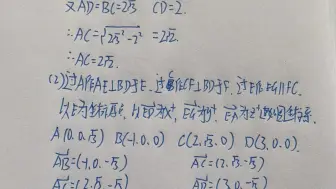 又AD=BC=2√3 CD=2.
∴AC=√(2√3²-2²) =2√2.
∴AC=2√2.
(2)过A作AE⊥BD于E. 过C作CF⊥BD于F. 过E作EG∥FC.
以E为坐标原, 以ED为x, EG为y. EA为z 建 坐标系.
A(0,0,√3) B(-1,0,0) C(2,√3,0) D(3,0,0).
AB=(-1,0,-√3) AC=(2,√3,-√3)
AC=(2,√3,-√3) AD=(3,0,-√3)